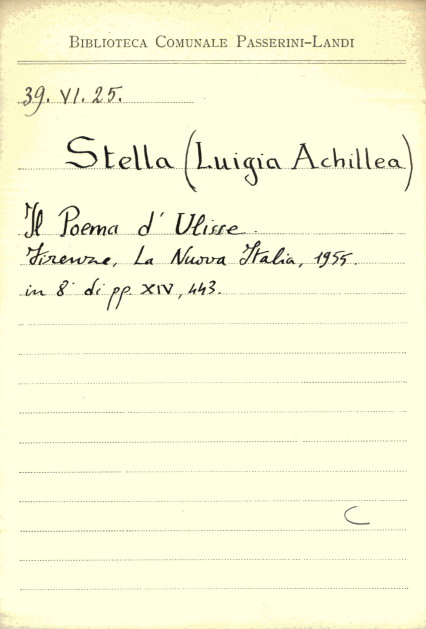 BIBLIOTECA COMUNALE PASSERINI-LANDI
39. VI. 25.
Stella (Luigia Achillea)
Il Poema d' Ulisse.
Firenze, La Nuova Italia, 1955.
in 8° di pp. XIV, 443.
C